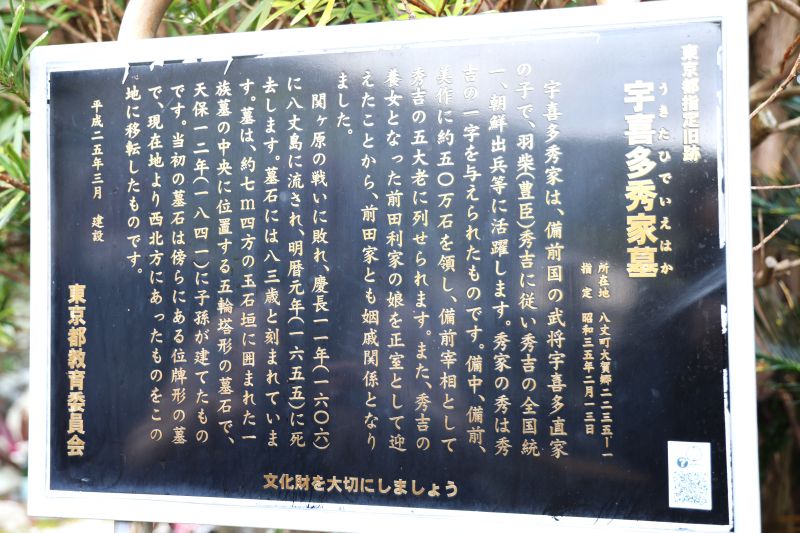 東京都指定旧跡
うきたひでいえはか
宇喜多秀家墓
所在地 八丈町大賀郷二二三五ー一
指定 昭和三五年二月一三日
宇喜多秀家は、備前国の武将宇喜多直家
の子で、羽柴(豊臣)秀吉に従い秀吉の全国統
一、朝鮮出兵等に活躍します。秀家の秀は秀
吉の一字を与えられたものです。備中、備前、
美作に約五〇万石を領し、備前宰相として
秀吉の五大老に列せられます。また、秀吉の
養女となった前田利家の娘を正室として迎
えたことから、前田家とも姻戚関係となり
ました。
関ヶ原の戦いに敗れ、慶長一一年(一六〇六)
に八丈島に流され、明暦元年(一六五五)に死
去します。墓石には八三歳と刻まれていま
す。墓は、約七m四方の玉石垣に囲まれた一
族墓の中央に位置する五輪塔形の墓石で、
天保一二年(一八四一)に子孫が建てたもの
です。当初の墓石は傍らにある位牌形の墓
で、現在地より西北方にあったものをこの
地に移転したものです。
平成二五年三月 建設
東京都教育委員会
文化財を大切にしましょう